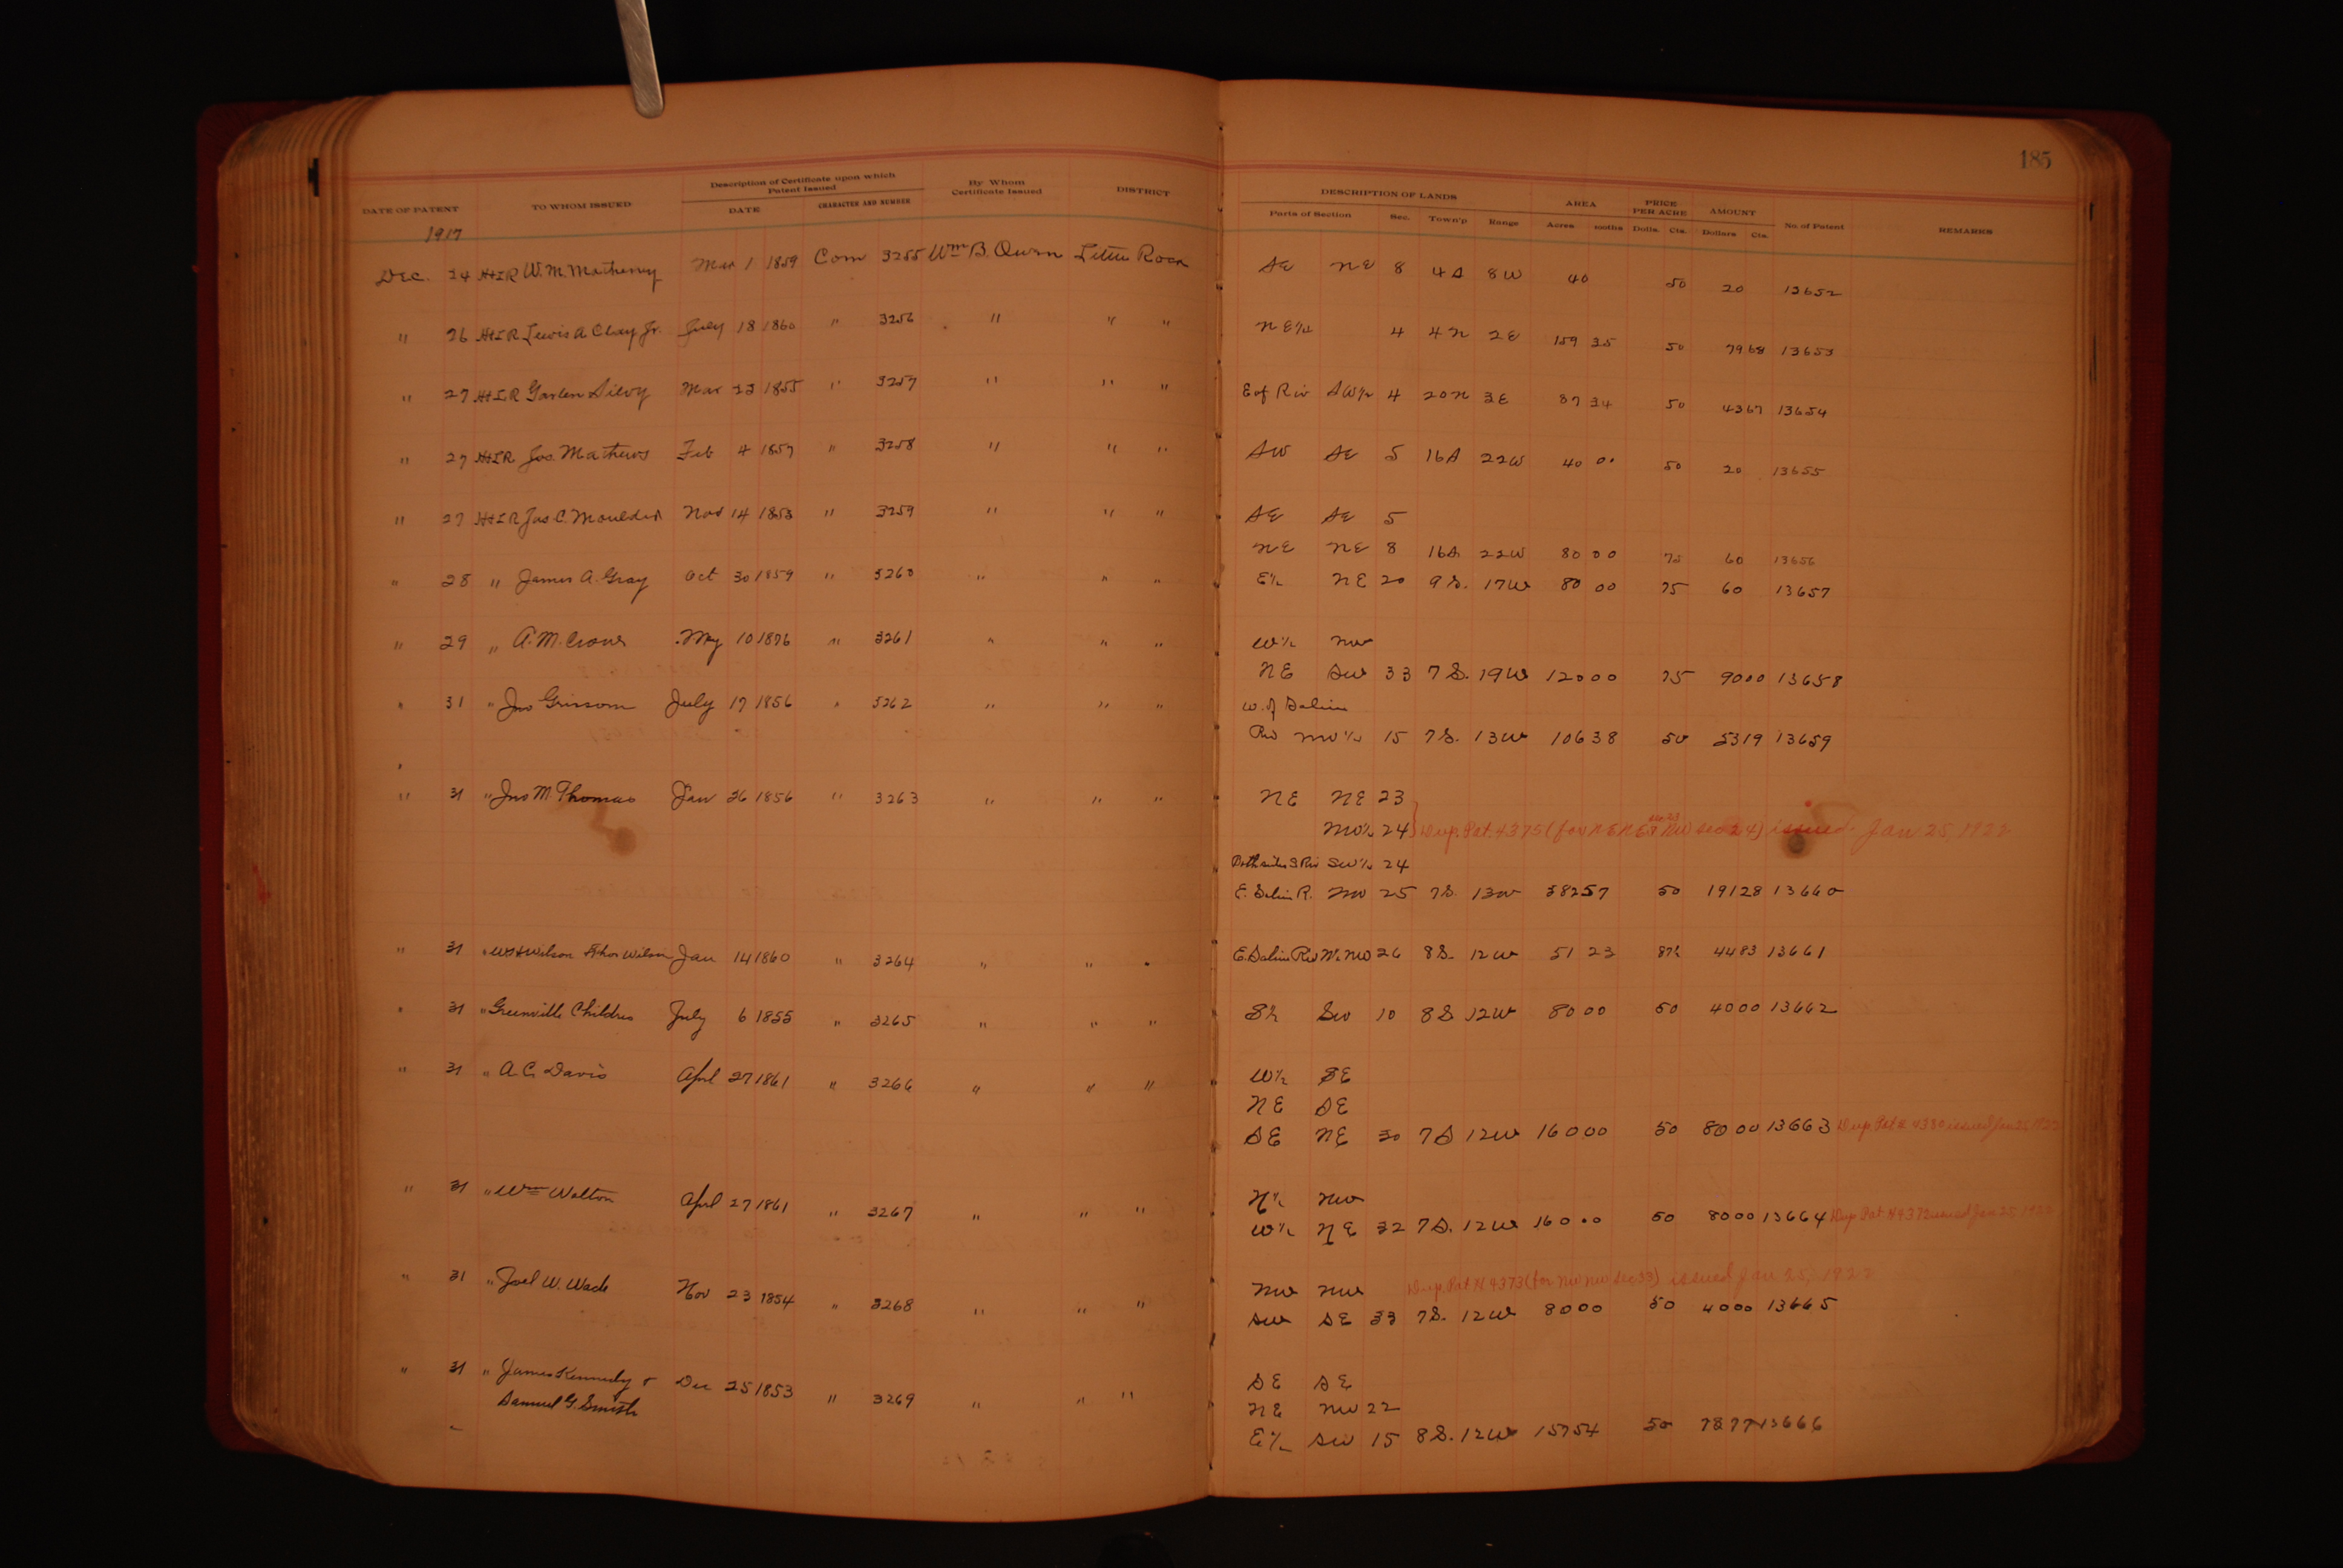 185
DATE OF PATENT TO WHOM ISSUED Description of Certificate upon which Patent Issued DATE CHARACTER AND NUMBER By Whom Certificate Issued DISTRICT DESCRIPTION OF LANDS Parts of Section Sec. Town'p Range AREA Acres PRICE PER ACRE Dolls. Cts. AMOUNT Dollars Cts. No. of Patent REMARKS
1917
Dec. 24 W. M. Matheny Mar 1 1859 Com 3255 Wm B. Owen Little Rock SE NE 8 4S 8W 40 50 20 13652
" 26 Lewis A Clay Jr. July 18 1860 " 3256 " " " NE¼ 4 4N 2E 159 35 50 79 68 13653
" 27 Garlen Silvy Mar 23 1855 " 3257 " " " E of Riv SW¼ 4 20N 3E 87 34 50 43 67 13654
" 27 Jos. Mathews Feb 4 1857 " 3258 " " " SW SE 5 16S 22W 40 00 50 20 13655
" 27 Jas C. Moulder Nov 14 1853 " 3259 " " " SE SE 5
NE NE 8 16S 22W 80 00 75 60 13656
" 28 " James A. Gray Oct 30 1859 " 3260 " " " E½ NE 20 9S. 17W 80 00 75 60 13657
" 29 " A. M. May 10 1876 " 3261 " " " W½ NW
NE SW 33 7S. 19W 120 00 75 90 00 13658
" 31 " Jno Grissom July 17 1856 " 3262 " " " W. of Saline
Riv NW¼ 15 7S. 13W 106 38 50 53 19 13659
" 31 " Jno M. Thomas Jan 26 1856 " 3263 " " " NE NE 23
NW¼ 24 Dup. Pat. 4375 (for NE NE sec 23 & NW sec 24) issued Jan 25, 1922
Both sides S Riv SW¼ 24
E. Saline R. NW 25 7S. 13W 382 57 50 191 28 13660
" 31 " W H Wilson & Thos Wilson Jan 14 1860 " 3264 " " " E. Saline Riv W½ NW 26 8S. 12W 51 23 87½ 44 83 13661
" 31 " Greenville Childres July 6 1855 " 3265 " " " S½ SW 10 8S 12W 80 00 50 40 00 13662
" 31 " A. C. Davis Aprl 27 1861 " 3266 " " " W½ SE
NE SE
SE NE 30 7S 12W 160 00 50 80 00 13663 Dup Pat # 4380 issued Jan 25 1922
" 31 " Wm Walton Aprl 27 1861 " 3267 " " " N½ NW
W½ NE 32 7S. 12W 160 00 50 80 00 13664 Dup Pat. # 4372 issued Jan 25 1922
" 31 " Joel W. Wade Nov 23 1854 " 3268 " " " NW NW Dup. Pat # 4373 (for NW NW sec 33) issued Jan 25, 1922
SW SE 33 7S. 12W 80 00 50 40 00 13665
" 31 " James Kennedy & Dec 25 1853 " 3269 " " " SE SE
Samuel G. Smith NE NW 22
E½ SW 15 8S. 12W 157 54 50 78 77 13666